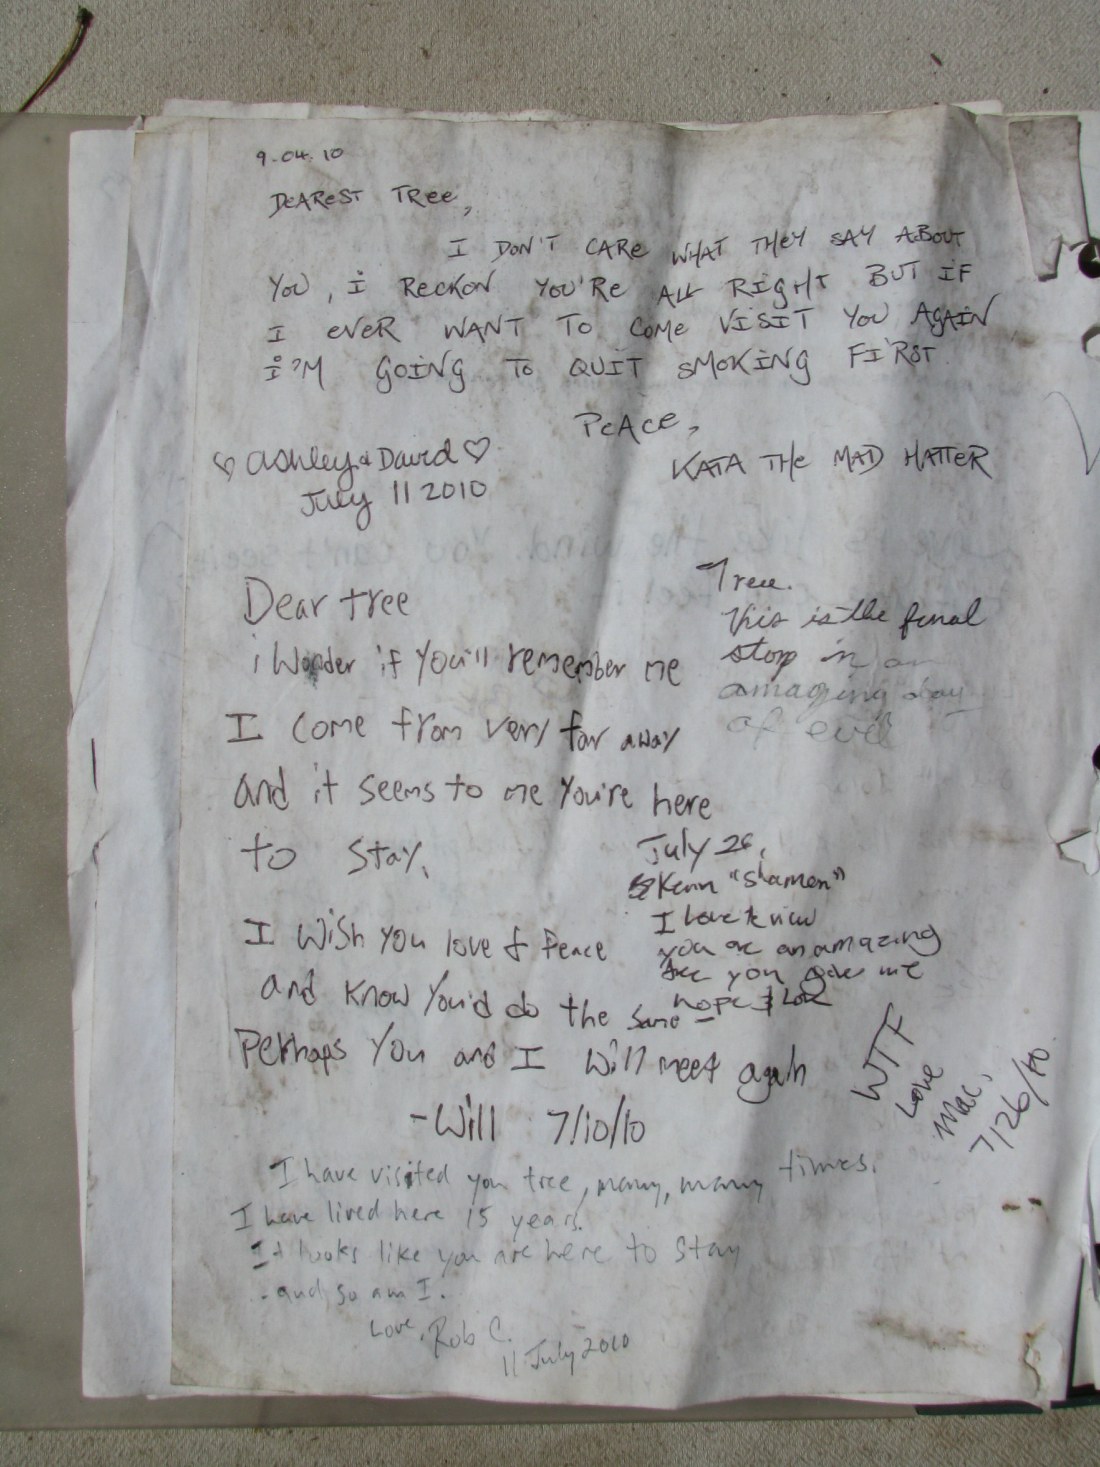 9.04.10
DEAREST TREE,
I DON'T CARE WHAT THEY SAY ABOUT
YOU, I RECKON YOU'RE ALL RIGHT BUT IF
I EVER WANT TO COME VISIT YOU AGAIN
I'M GOING TO QUIT SMOKING FIRST.
PEACE,
KATA THE MAD HATTER
♡ Ashley & David ♡
July 11 2010
Dear tree
i Wonder if you'll remember me
I come from very far away
and it seems to me you're here
to stay.
I wish you love & Peace
and know you'd do the same –
Perhaps you and I will meet again
-Will 7/10/10
Tree.
this is the final
stop in an
amazing day
of
July 26,
Kenn "Shamen"
I love view
you are an amazing
tree you gave me
hope & Love
WTF
Love
Mac,
7/26/10
I have visited you tree, many, many times.
I have lived here 15 years.
It looks like you are here to stay
- and so am I.
Love, Rob C.
11 July 2010